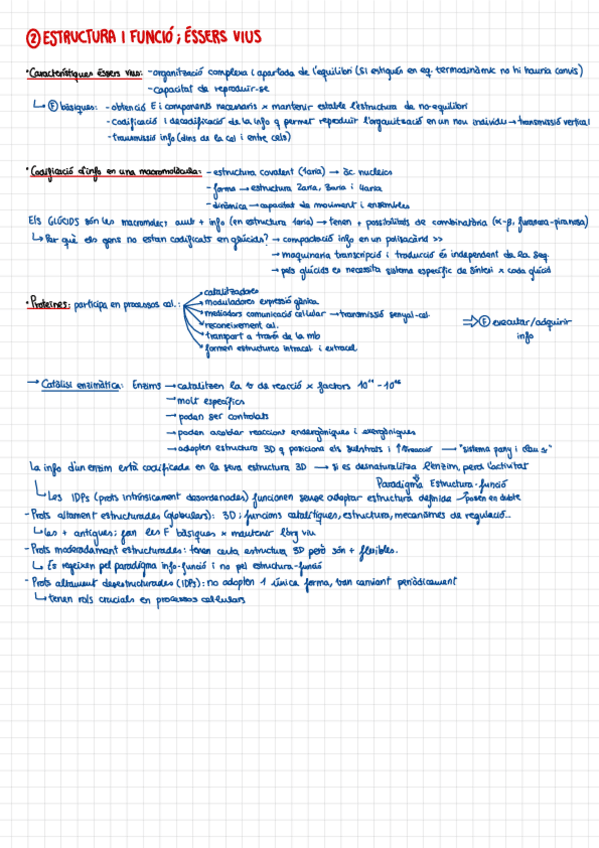 ② ESTRUCTURA I FUNCIÓ; ÉSSERS VIUS
· Característiques éssers vius: - organització complexa i apartada de l'equilibri (si estigués en eq. termodinàmic no hi hauria canvis)
- capacitat de reproduir-se
↳ Ⓕ bàsiques: - obtenció E i components necessaris x mantenir estable l'estructura de no-equilibri
- codificació i decodificació de la info q permet reproduir l'organització en un nou individu → transmissió vertical
- transmissió info (dins de la cel i entre cels)
· Codificació d'info en una macromolècula: - estructura covalent (1ària) → àc. nucleics
- forma → estructura 2ària, 3ària i 4ària
- dinàmica → capacitat de moviment i ensembles
Els GLÚCIDS són les macromolec, amb + info (en estructura 1ària) → tenen + possibilitats de combinatòria (α-β, furanosa-piranosa)
↳ Per què els gens no estan codificats en glúcids? → compactació info en un polisacàrid >>
→ maquinaria transcripció i traducció és independent de la seq.
→ pels glúcids es necessita sistema específic de síntesi x cada glúcid
· Proteïnes: participa en processos cel.:
catalitzadores
moduladores expressió gènica
mediadors comunicació cel·lular → transmissió senyal-cel
reconeixement cel.
transport a través de la mb
formen estructures intracel i extracel
⇒ Ⓕ executar/adquirir
info
→ Catàlisi enzimàtica: Enzims → catalitzen la v de reacció x factors
→ molt específics
→ poden ser controlats
→ poden acoblar reaccions endergòniques i exergòniques
→ adopten estructura 3D q posiciona els substrats i ↑ → "sistema pany i clau"
La info d'un enzim està codificada en la seva estructura 3D → si es desnaturalitza l'enzim, perd l'activitat
Paradigma Estructura-funció
↳ Les IDPs (prots intrínsicament desordenades) funcionen sense adoptar estructura definida → posen en dubte
- Prots altament estructurades (globulars): 3D; funcions catalítiques, estructura, mecanismes de regulació...
↳ les + antigues; fan les F bàsiques x mantenir l'org viu
- Prots moderadament estructurades: tenen certa estructura 3D però són + flexibles.
↳ Es regeixen pel paradigma info-funció i no pel estructura-funció
- Prots altament desestructurades (IDPs): no adopten 1 única forma, van canviant periòdicament
↳ tenen rols crucials en processos cel·lulars